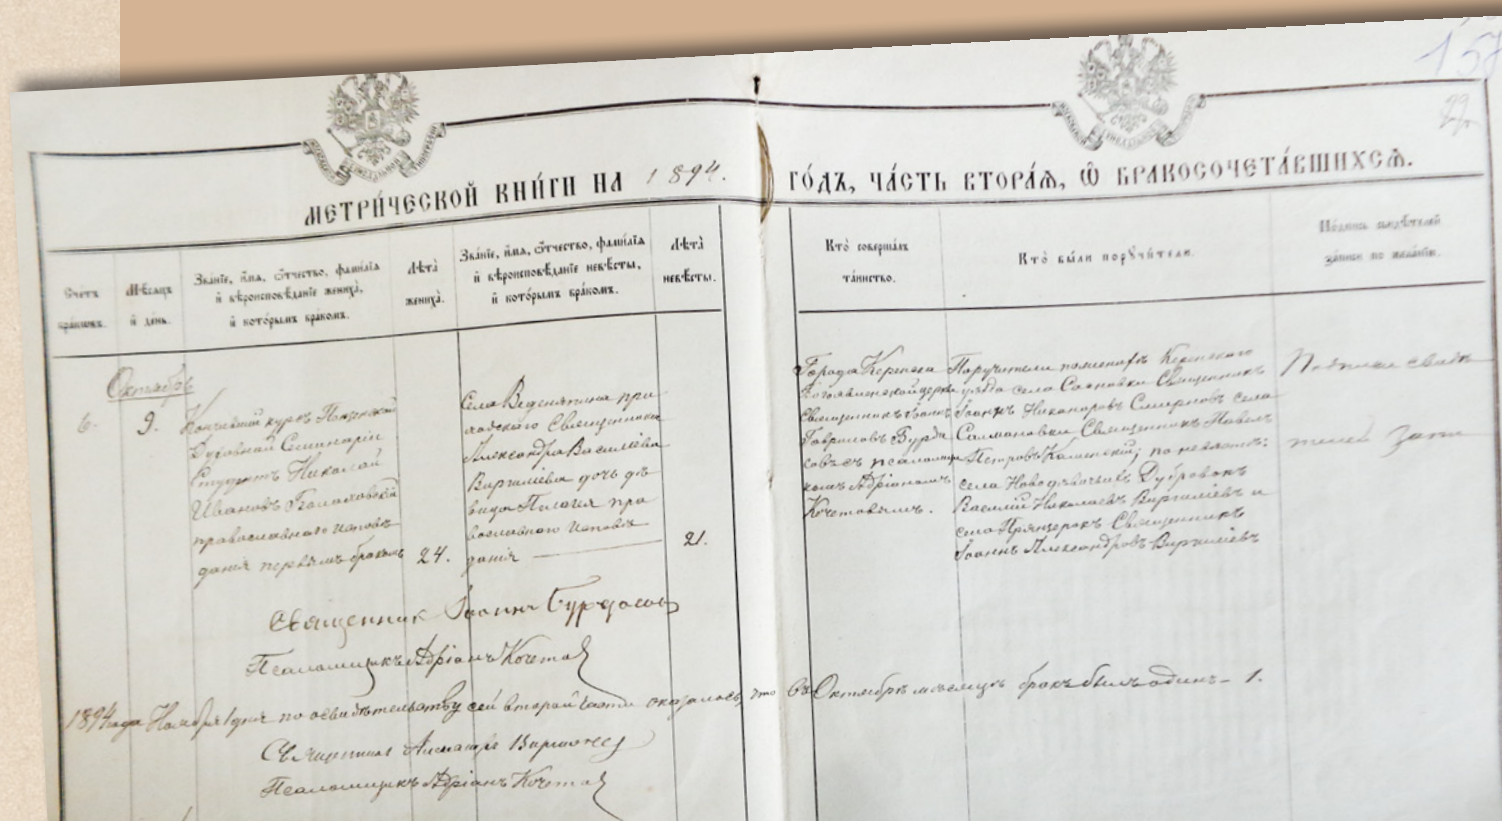 157
22
МЕТРИ́ЧЕСКОЙ КНИ́ГИ НА 1894. ГО́ДЪ, ЧА́СТЬ ВТОРА́Ѧ, Ѽ БРАКОСОЧЕТА́ВШИХСѦ.
Счетъ
браковъ.
Мѣсѧцъ
и҆ де́нь.
Зва́нїе, и҆́мѧ, ѻ҆́тчество, фами́лїѧ
и҆ вѣроисповѣ́данїе жениха̀,
и҆ кото́рымъ бра́комъ.
Лѣта̀
жениха̀.
Зва́нїе, и҆́мѧ, ѻ҆́тчество, фами́лїѧ
и҆ вѣроисповѣ́данїе невѣ́сты,
и҆ кото́рымъ бра́комъ.
Лѣта̀
невѣ́сты.
Кто̀ соверша́лъ
та́инство.
Кто̀ бы́ли порꙋчи́тели.
По́дпись свидѣ́телей
за́писи по жела́нїю.
Октябрь
6.
9.
Кончившій курсъ Пензенской
Духовной Семинаріи
Студентъ Николай
Ивановъ
православнаго исповѣ
данія первымъ бракомъ
24.
Села Веденяпина при
ходскаго Священника
Александра Василіева
Виргиліева дочь дѣ
вица Пелагія пра
вославнаго исповѣ
данія
21.
Города Керенска
Богоявленской церкви
Священникъ Іоаннъ
Гавриловъ Бурда
совъ съ псаломщи
комъ Адріаномъ
Кочетовымъ.
Поручители по жениху Керенскаго
уѣзда села Сосновки Священникъ
Іоаннъ Никаноровъ Смирновъ села
Салмановки Священникъ Павелъ
Петровъ по невѣстѣ:
села Дубровокъ
Василій Николаевъ Виргиліевъ и
села Священникъ
Іоаннъ Александровъ Виргиліевъ
Подписи свидѣ
телей запи
Священникъ Іоаннъ Бурдасовъ
Псаломщикъ Адріанъ Кочетов
1894 года Ноября 1 дня по освидѣтельству сей второй части оказалось, что въ Октябрѣ мѣсяцѣ бракъ былъ одинъ – 1.
Священникъ Александръ Виргилиев
Псаломщикъ Адріанъ Кочетов